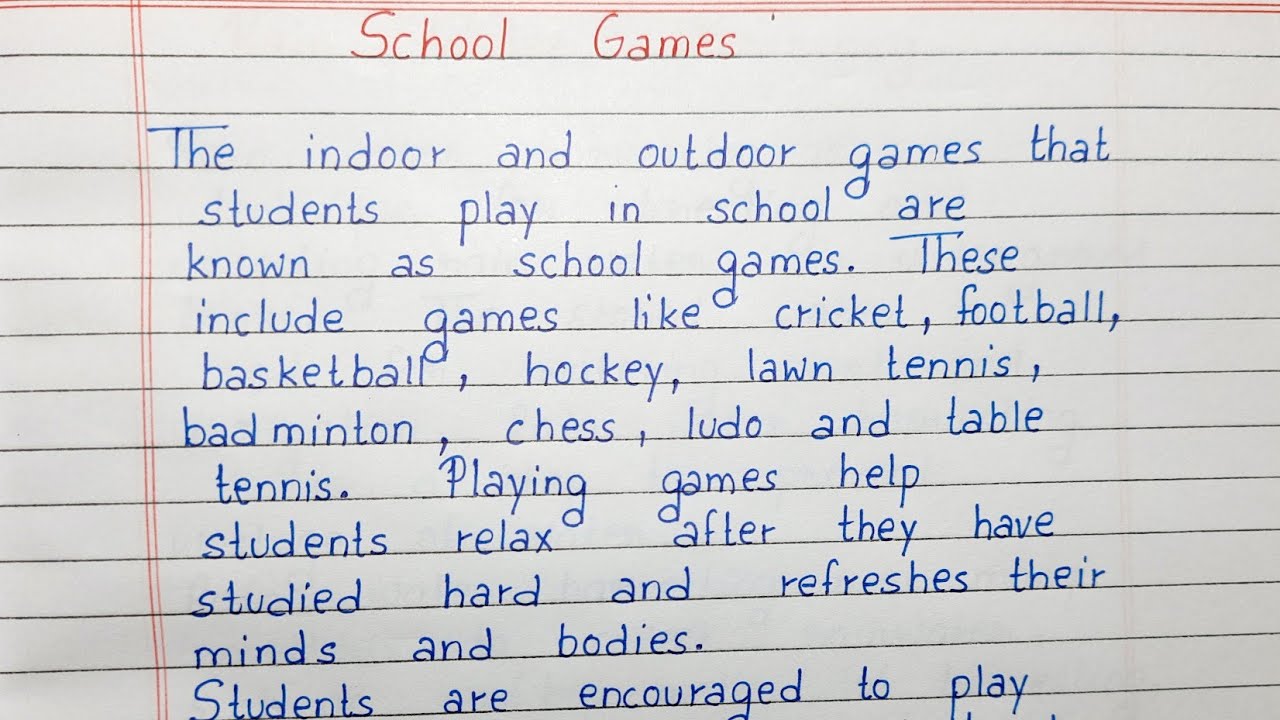 School Games
The indoor and outdoor games that
students play in school are
known as school games. These
include games like cricket, football,
basketball, hockey, lawn tennis,
badminton, chess, ludo and table
tennis. Playing games help
students relax after they have
studied hard and refreshes their
minds and bodies.
Students are encouraged to play